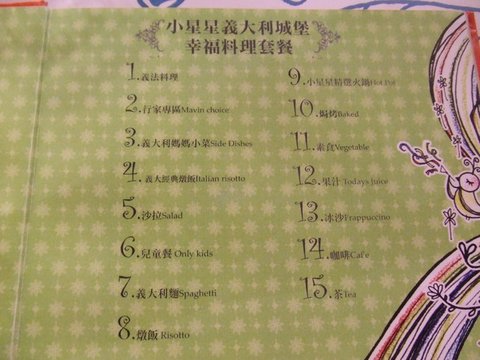 小星星義大利城堡
幸福料理套餐
1.義法料理
2.行家專區Mavin choice
3.義大利媽媽小菜Side Dishes
4.義大經典燉飯Italian risotto
5.沙拉Salad
6.兒童餐 Only kids
7.義大利麵Spaghetti
8.燉飯 Risotto
9.小星星精選火鍋Hot Pot
10.焗烤Baked
11.素食Vegetable
12.果汁 Todays juice
13.冰沙Frappuccino
14.咖啡Caf'e
15.茶Tea